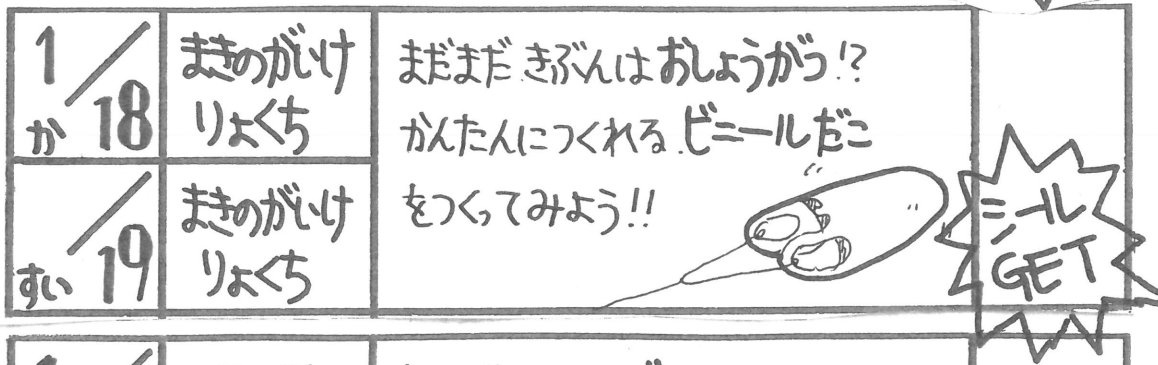 1/18
か
まきのがいけ
りょくち
まだまだ きぶんは おしょうがつ!?
かんたんにつくれる ビニールだこ
をつくってみよう!!
/19
すい
まきのがいけ
りょくち
シール
GET